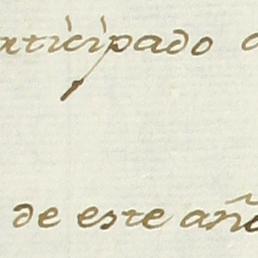 anticipado
de este año